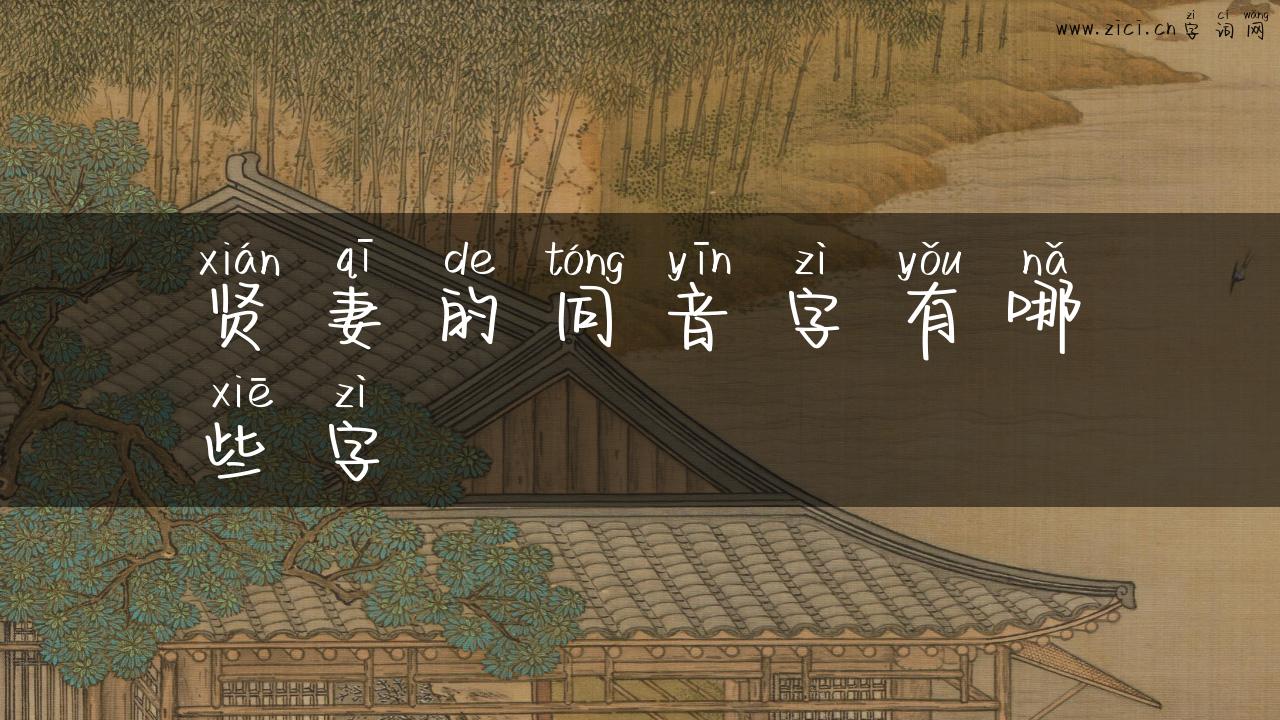 zì cí wǎng
www.zici.cn字词网
xián qī de tóng yīn zì yǒu nǎ
贤妻的同音字有哪
xiē zì
些字